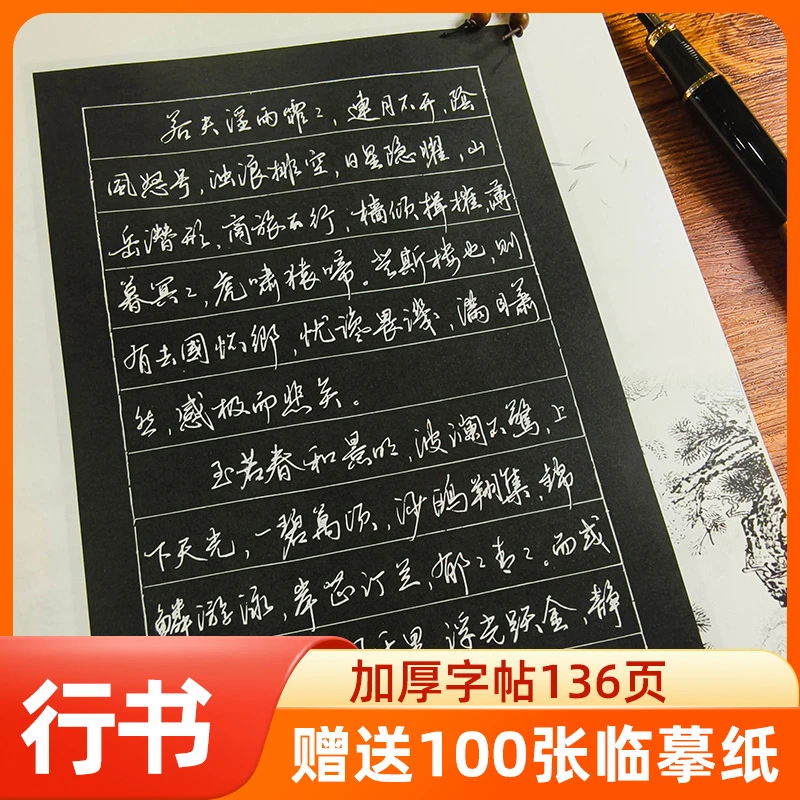 若夫淫雨霏〻，連月不开，陰
风怒号，浊浪排空，日星隐耀，山
岳潜形，商旅不行，樯倾楫摧，薄
暮冥〻，虎啸猿啼。登斯楼也，则
有去國怀鄉，忧谗畏讥，满目萧
然，感极而悲矣。
至若春和景明，波澜不驚，上
下天光，一碧萬顷，沙鸥翔集，錦
鱗游泳，岸芷汀兰，郁〻青〻。而或
浮光跃金，静
行书
加厚字帖136页
赠送100张临摹纸